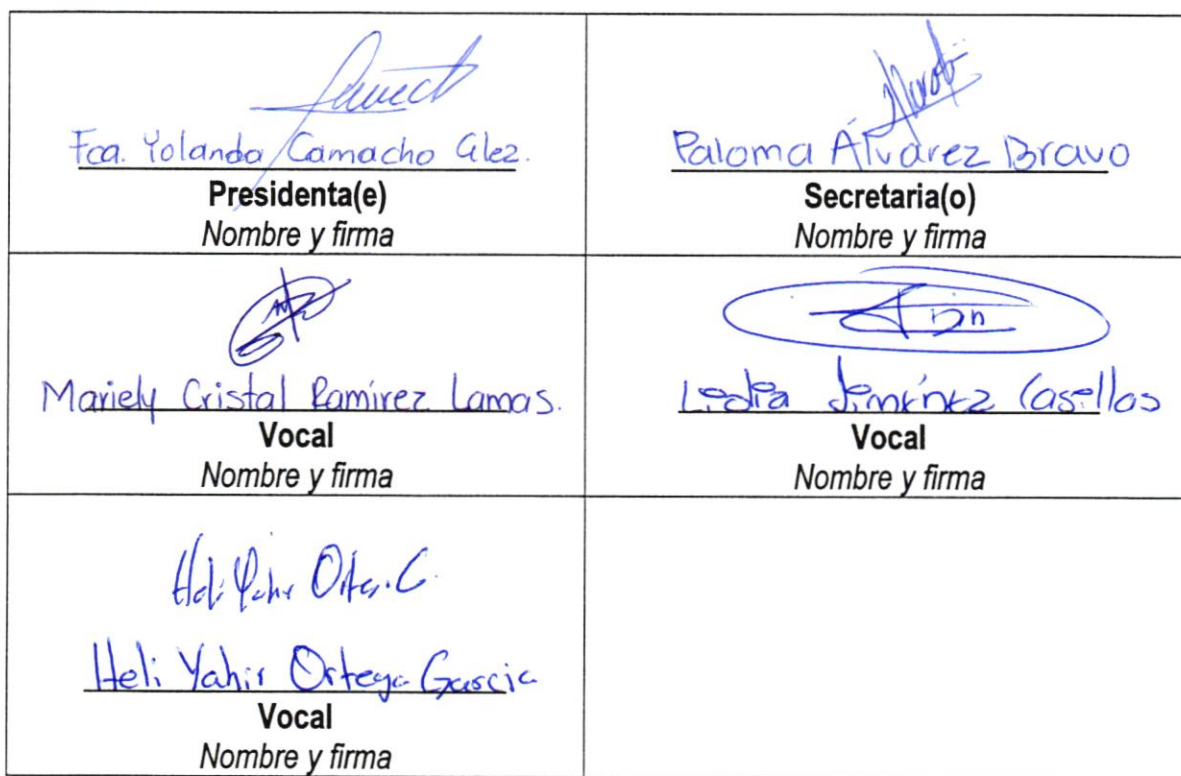 Fca. Yolanda Camacho Glez.
Presidenta(e)
Nombre y firma
Paloma Álvarez Bravo
Secretaria(o)
Nombre y firma
Mariely Cristal Ramírez Lamas.
Vocal
Nombre y firma
Lidia Jiménez Casillas
Vocal
Nombre y firma
Heli Yahir Ortega Garcia
Vocal
Nombre y firma